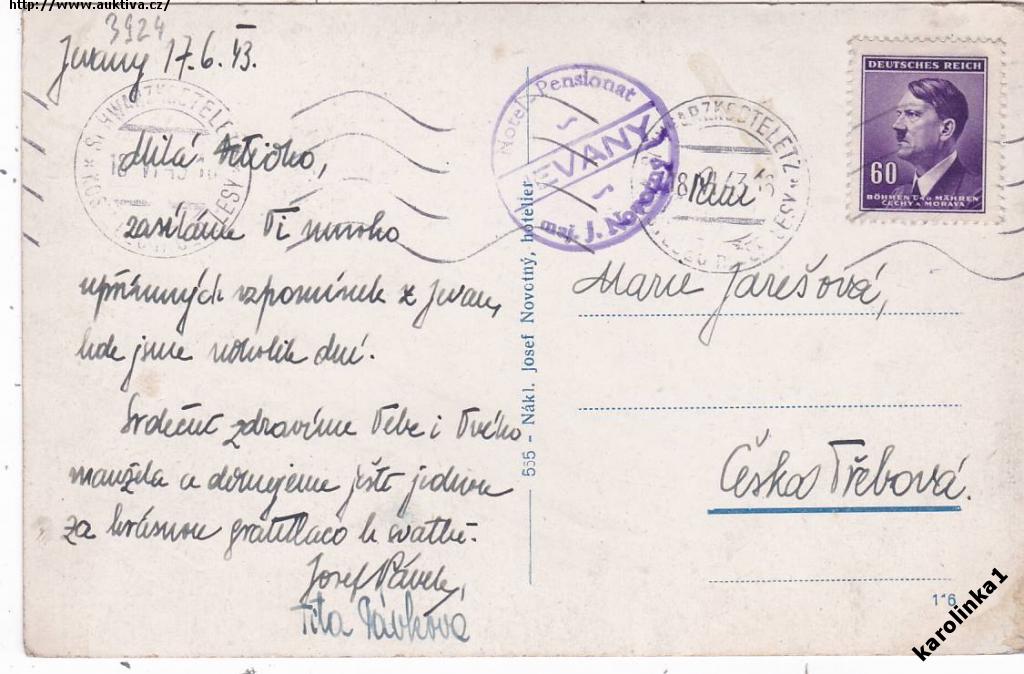 http://www.auktiva.cz/
3924
Jevany 17.6.43.
Milá
zasíláme Ti mnoho
upřímných vzpomínek z Jevan,
kde jsme několik dní.
Srdečně zdravíme Tebe i Tvého
manžela a děkujeme ještě jednou
za krásnou gratulaci k svatbě.
Josef Pávek,
Pávková
Hotel-Pensionat
JEVANY
maj. J. Novotný
SCHWARZKOSTELETZ
LESY
18. VI. 43
555 - Nákl. Josef Novotný, hotelier
SCHWARZKOSTELETZ
LESY
DEUTSCHES REICH
60
BÖHMEN UND MÄHREN
ČECHY A MORAVA
Paní
Marie Jarešová,
Česká Třebová.
116
karolinka1